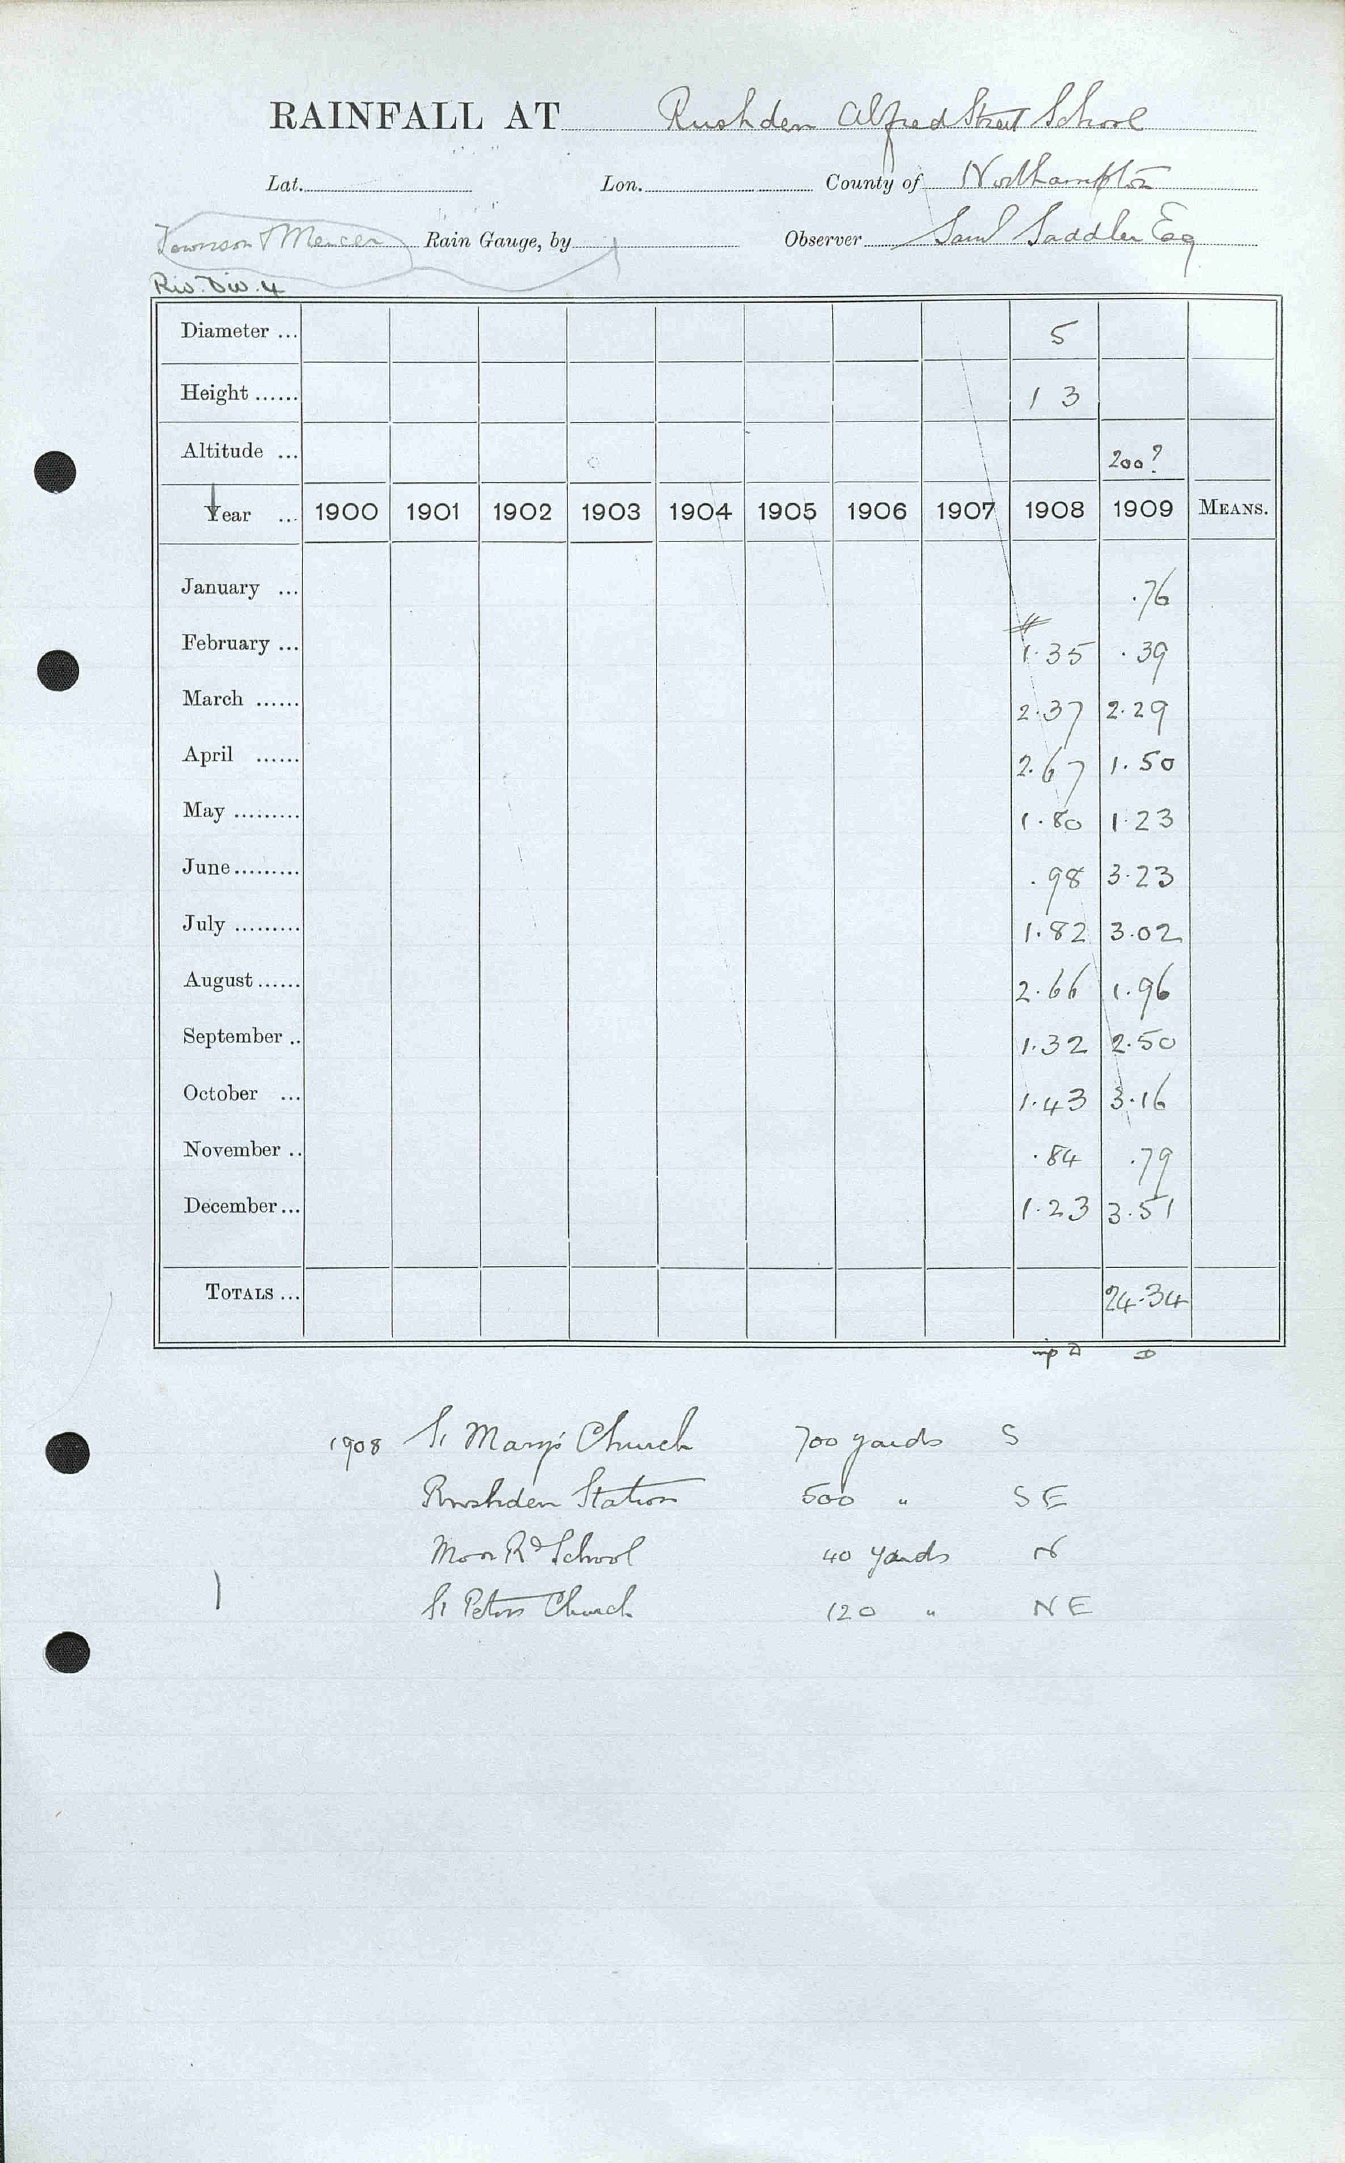 RAINFALL AT Rushden Alfred Street School
Lat. Lon. County of Northampton
Townson & Mercer Rain Gauge, by Observer Saml Saddler Esq
Riv. Div. 4
Diameter ... 5
Height ...... 1 3
Altitude ... 200?
Year ... 1900 1901 1902 1903 1904 1905 1906 1907 1908 1909 MEANS.
January ... .76
February ... 1.35 .39
March ...... 2.37 2.29
April ...... 2.67 1.50
May ......... 1.80 1.23
June ......... .98 3.23
July ......... 1.82 3.02
August ...... 2.66 1.96
September .. 1.32 2.50
October ... 1.43 3.16
November .. .84 .79
December ... 1.23 3.51
TOTALS ... 24.34
1908 St Mary's Church 700 yards S
Rushden Station 500 " SE
Moor Rd School 40 yards N
St Peters Church 120 " NE